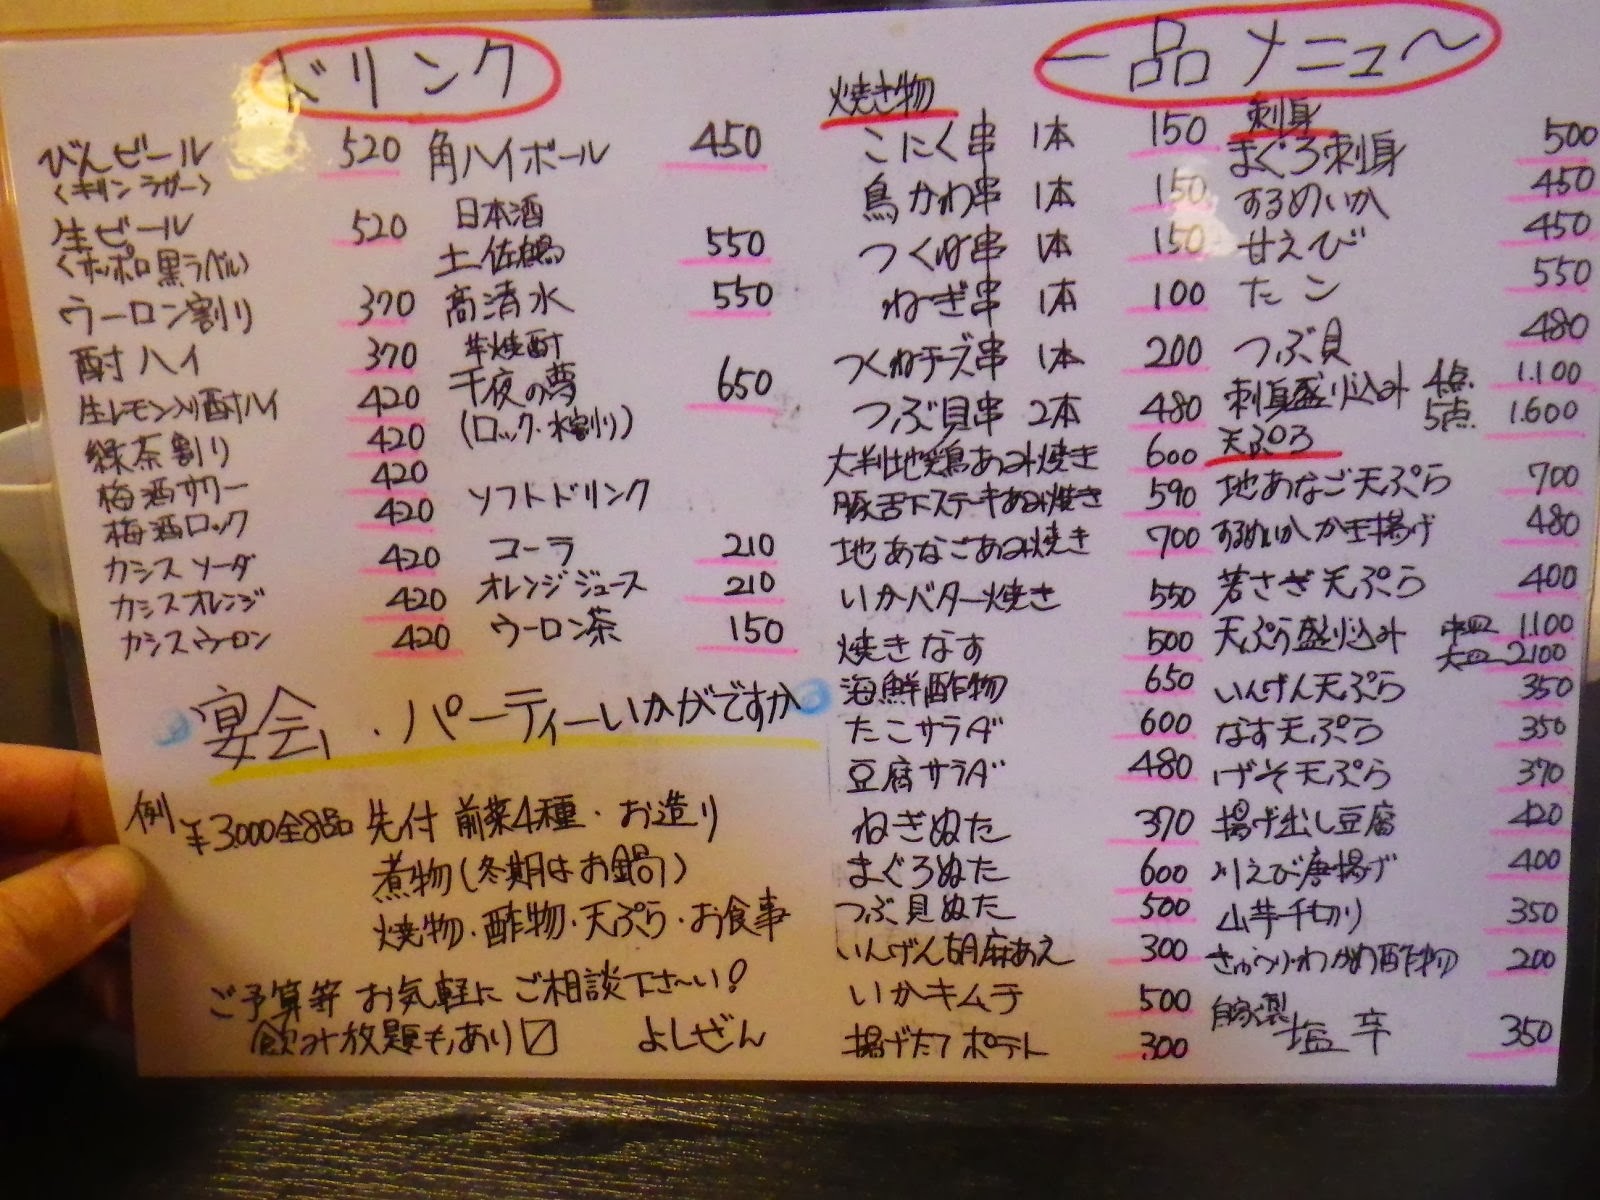 ドリンク
びんビール 520
〈キリンラガー〉
生ビール 520
〈サッポロ黒ラベル〉
ウーロン割り 370
酎ハイ 370
生レモン入り酎ハイ 420
緑茶割り 420
梅酒サワー 420
梅酒ロック 420
カシスソーダ 420
カシスオレンジ 420
カシスウーロン 420
角ハイボール 450
日本酒
土佐鶴 550
高清水 550
芋焼酎
千夜の夢 650
(ロック・水割り)
ソフトドリンク
コーラ 210
オレンジジュース 210
ウーロン茶 150
宴会・パーティーいかがですか
例 ¥3.000全8品 先付 前菜4種・お造り
煮物(冬期はお鍋)
焼物・酢物・天ぷら・お食事
ご予算等 お気軽に ご相談下さ〜い!
飲み放題もあり〼 よしぜん
一品メニュ〜
焼き物
こにく串 1本 150
鳥かわ串 1本 150
つくね串 1本 150
ねぎ串 1本 100
つくねチーズ串 1本 200
つぶ貝串 2本 480
大判地鶏あみ焼き 600
豚舌下ステーキあみ焼き 590
地あなごあみ焼き 700
いかバター焼き 550
焼きなす 500
海鮮酢物 650
たこサラダ 600
豆腐サラダ 480
ねぎぬた 370
まぐろぬた 600
つぶ貝ぬた 500
いんげん胡麻あえ 300
いかキムチ 500
揚げたてポテト 300
刺身
まぐろ刺身 500
するめいか 450
甘えび 450
たこ 550
つぶ貝 480
刺身盛り込み 4点 1.100
5点 1.600
天ぷら
地あなご天ぷら 700
するめいかかき揚げ 480
若さぎ天ぷら 400
天ぷら盛り込み 中皿 1.100
大皿 2100
いんげん天ぷら 350
なす天ぷら 350
げそ天ぷら 370
揚げ出し豆腐 420
川えび唐揚げ 400
山芋千切り 350
きゅうり・わかめ酢物 200
自家製塩辛 350